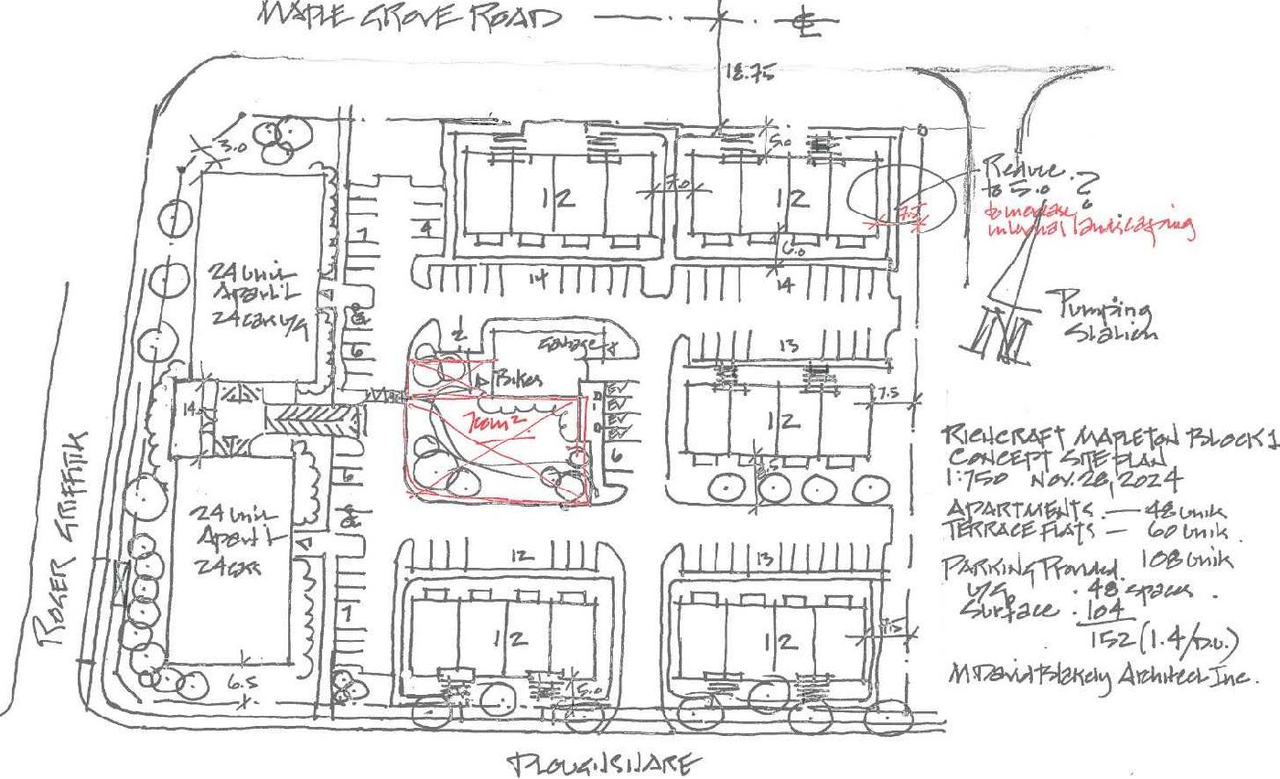 MAPLE GROVE ROAD
18.75
3.0
5.0
12
7.0
12
Reduce
to 5.0 ?
to increase
internal landscaping
7.5
6.0
7
4
14
14
24 unit
Apart't
24 car u/g
6
2
Garbage
Bikes
13
Pumping
Station
EV
EV
EV
EV
6
12
7.5
14.
700m²
ROGER GRIFFITH
24 unit
Apart't
24 car
6
7
12
13
12
12
7.5
5.0
6.5
RICHCRAFT MAPLETON BLOCK 1
CONCEPT SITE PLAN
1:750 NOV. 26, 2024
APARTMENTS — 48 unik
TERRACE FLATS — 60 unik
108 unik
PARKING Provided.
U/G. . 48 spaces.
Surface . 104
152 (1.4/D.U.)
M David Blakely Architect Inc.
PLOUGHSHARE